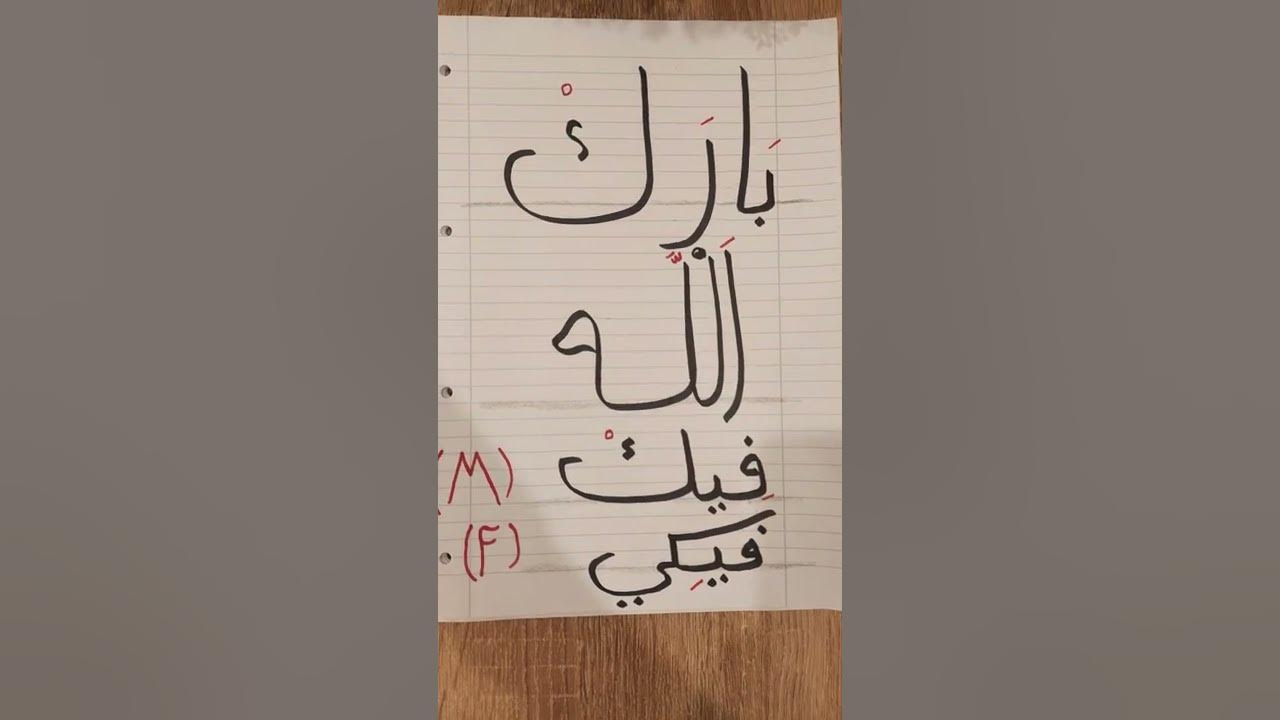 بَارَكْ
اَللَّه
فِيكْ (M)
فيكِي (F)